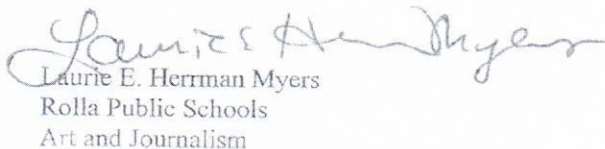 Laurie E Herrman Myers
Laurie E. Herrman Myers
Rolla Public Schools
Art and Journalism